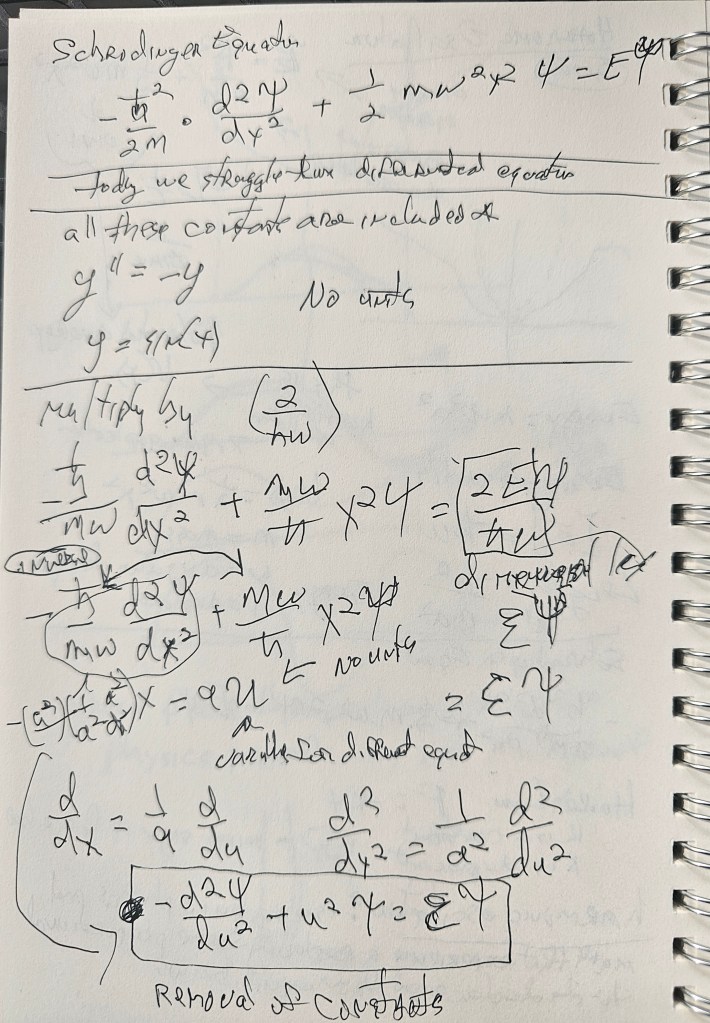 Schrodinger Equatin
-ħ²/2m · d2Ψ/dx² + 1/2 mw²x² Ψ = EΨ
today we struggle differential equatin
all these constants are included
y" = -y
No units
y = sin(x)
multiply by (2/ħw)
-ħ/mw d²Ψ/dx² + mw/ħ x²Ψ = 2EΨ/ħw
inverse
dimension
-ħ/mw d2Ψ/dx² + mw/ħ x²Ψ
ƐΨ
no units
-(a²)(1/a² d²/du²) x = au
= ƐΨ
variable for different equat
d/dx = 1/a d/du
d²/dx² = 1/a² d²/du²
-d²Ψ/du² + u²Ψ = ƐΨ
Removal of Constants